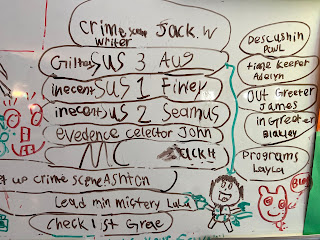 crime scene Jack.W
writer
Giltey sus 3 Aug
inecent sus 1 Finley
inecent sus 2 Seamus
evedence celector John
MC Jack H
et up crime scene Ashton
Lead min mistery Lula
Check list Grae
Descushin
Paul
time keeper
Adelyn
Out Greeter
James
in Greeter
Blakley
Programs
Layla